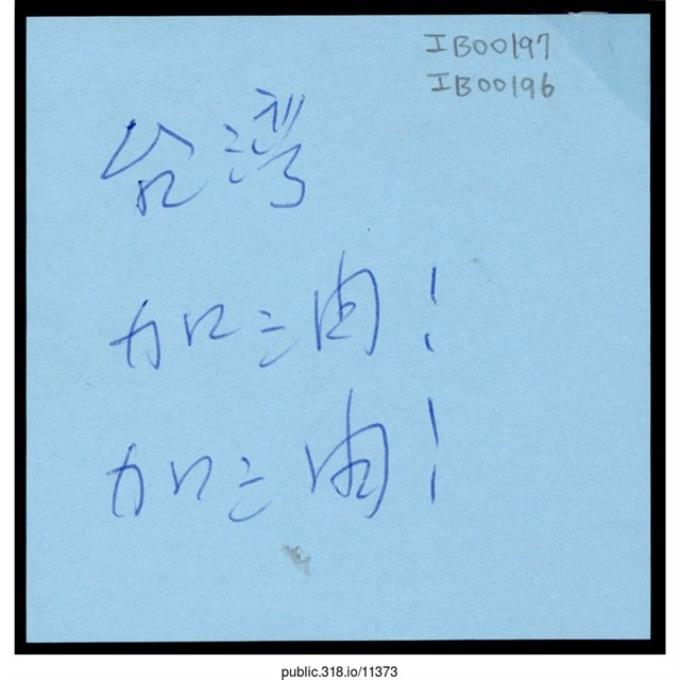 IB00197
IB00196
台湾
加油!
加油!
public.318.io/11373